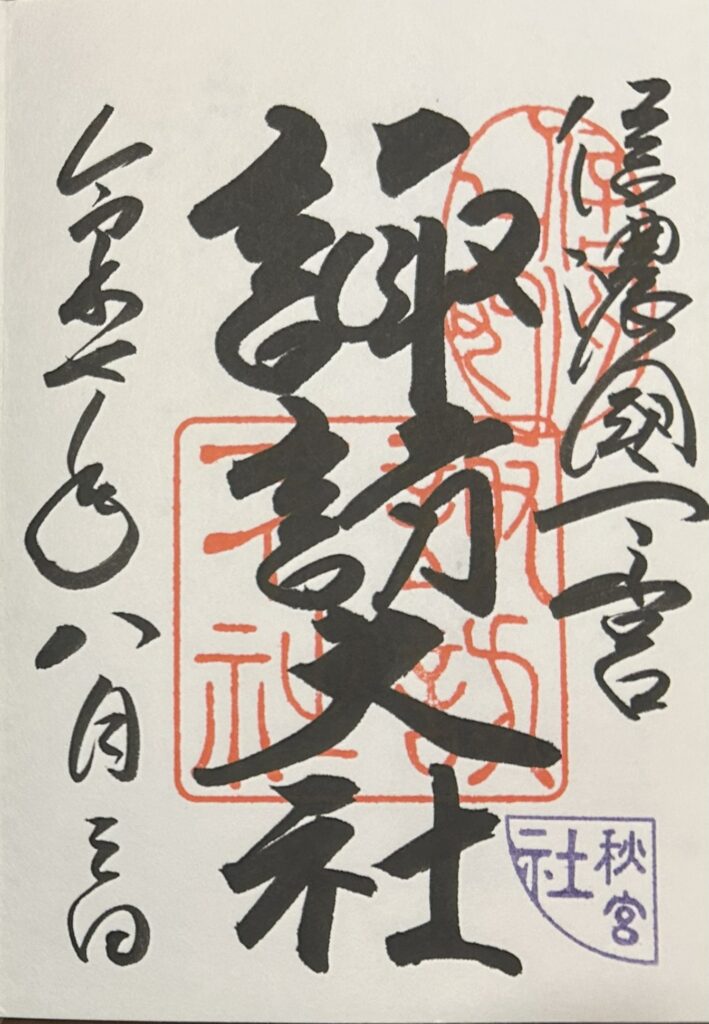 信濃國一宮
諏訪大社
令和七年八月三日
秋宮
社